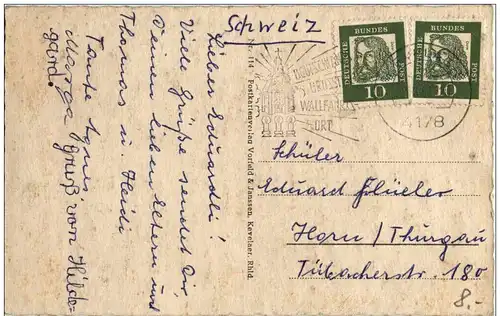 Schweiz
Lieber Eduardli!
Viele Grüße sendet Dir,
Deinen lieben Eltern und
Thomas u. Heidi
Tante Agnes
Gruß von Hilde-
gard.
Nr. 114 Postkartenverlag Vorfeld & Janssen, Kevelaer, Rhld.
DEUTSCHE
BUNDES
POST
10
DEUTSCHE
BUNDES
POST
10
WALLFAHRTS
ORT
4178
Schüler
Eduard Flüeler
Horn / Thurgau
Tübacherstr. 180
8.-